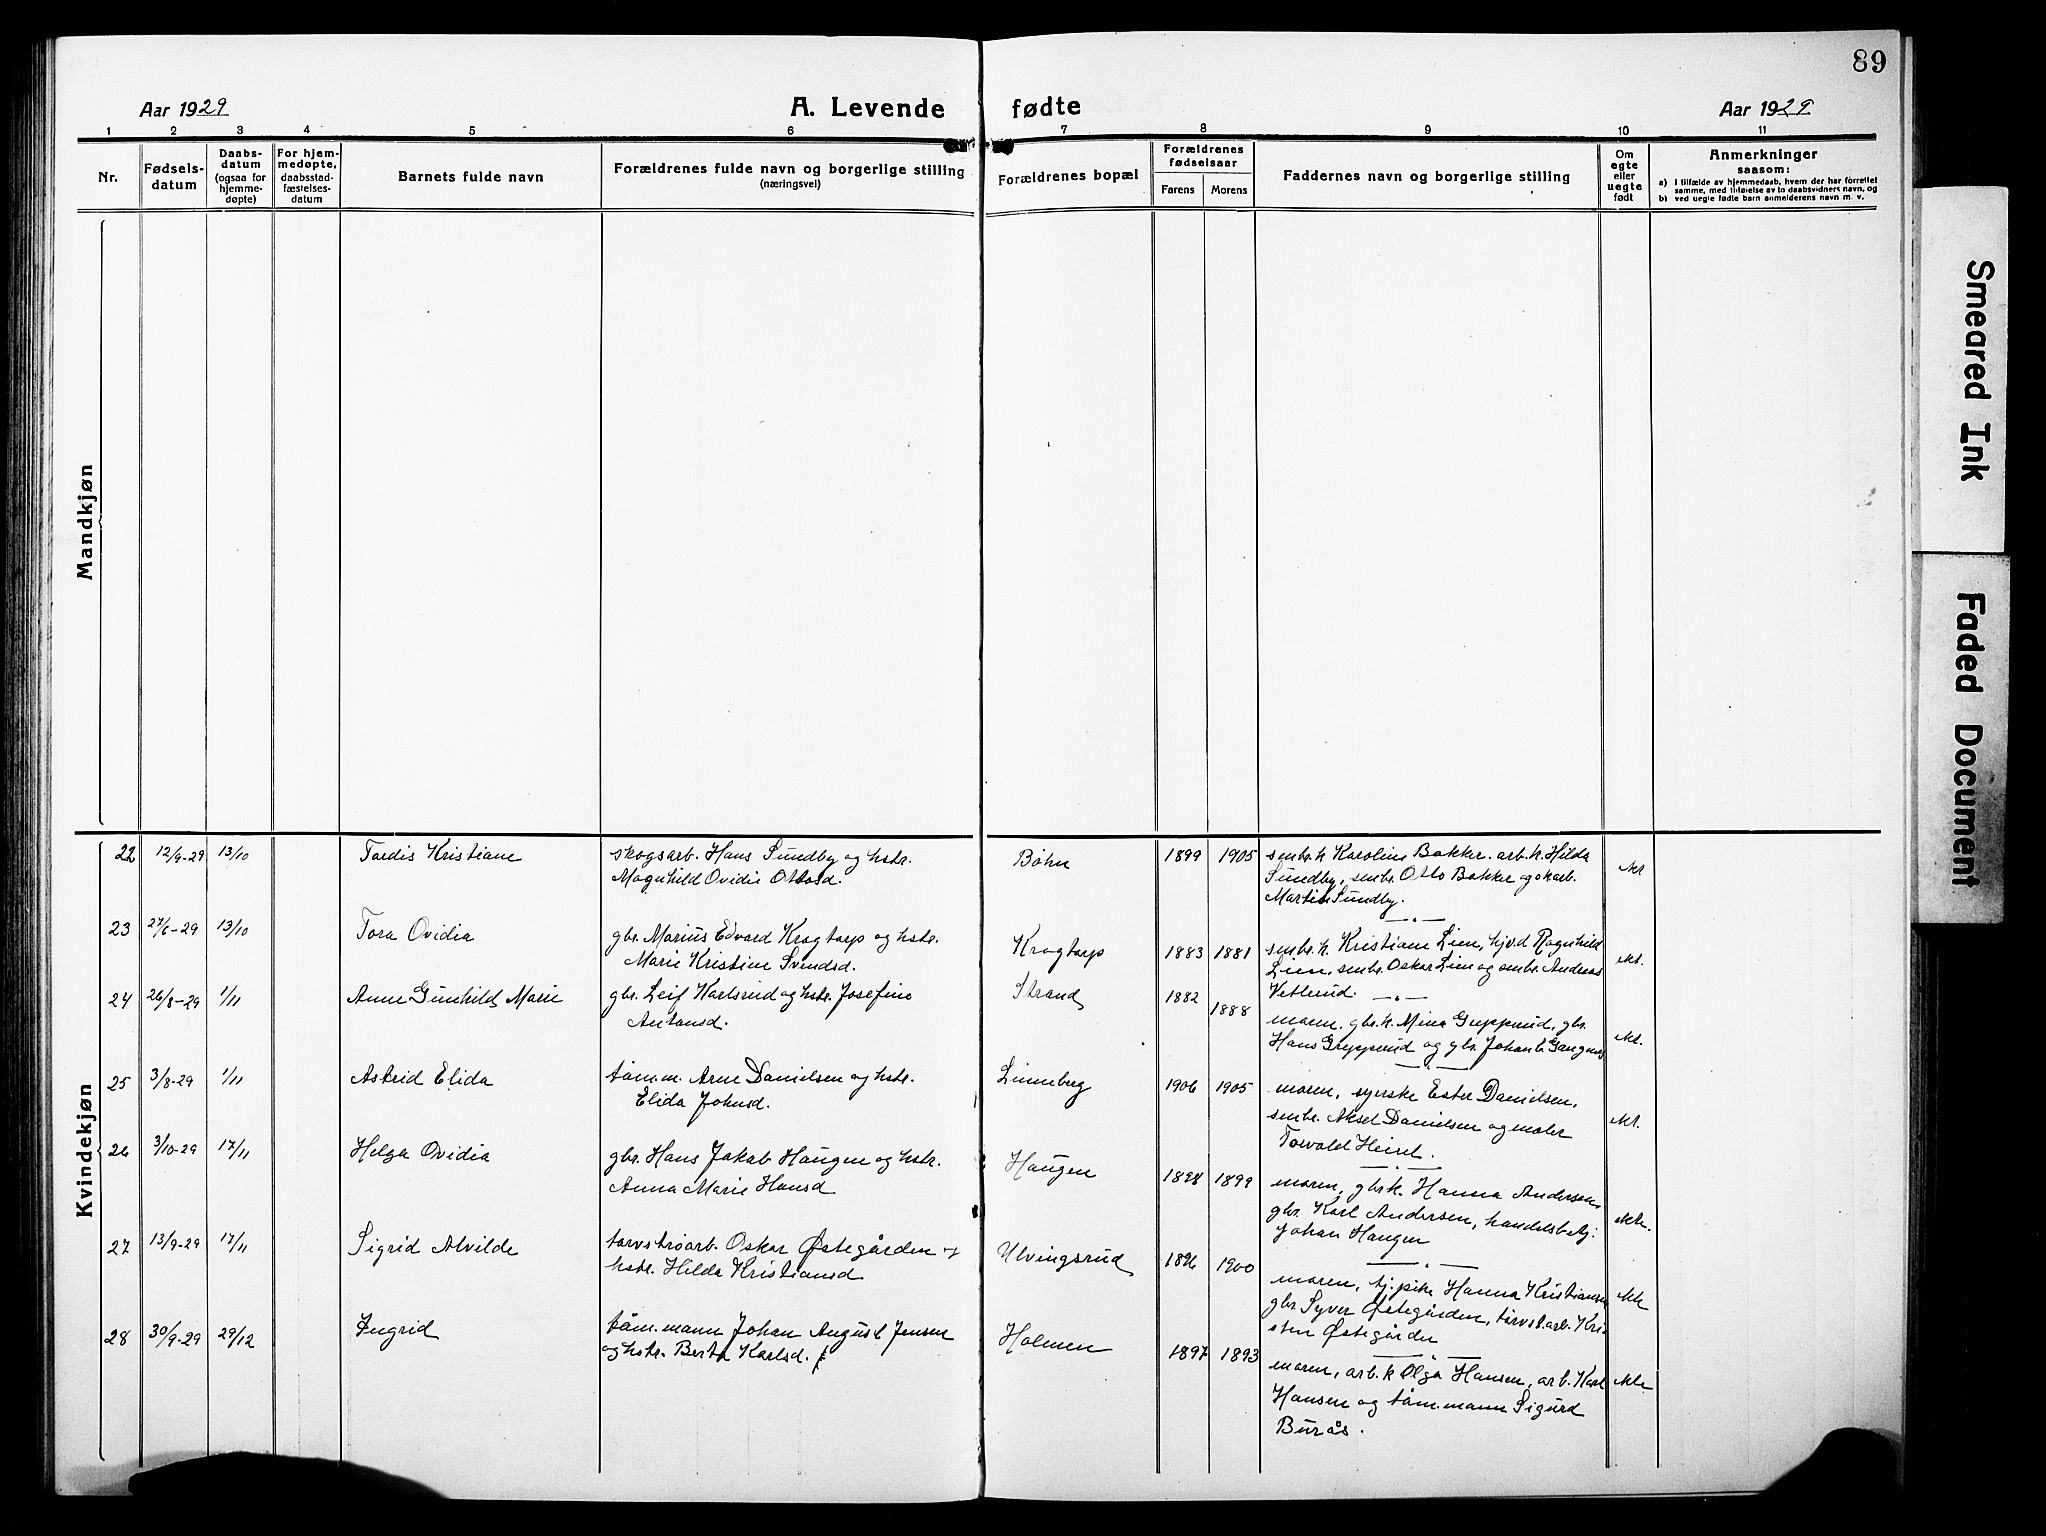 89
Aar 1929
A. Levende fødte
Aar 1929
1 2 3 4 5 6 7 8 9 10 11
Nr.
Fødsels-
datum
Daabs-
datum
(ogsaa for
hjemme-
døpte)
For hjem-
medøpte,
daabsstad-
fæstelses-
datum
Barnets fulde navn
Forældrenes fulde navn og borgerlige stilling
(næringsvei)
Forældrenes bopæl
Forældrenes
fødselsaar
Farens Morens
Faddernes navn og borgerlige stilling
Om
egte
eller
uegte
født
Anmerkninger
saasom:
a) I tilfælde av hjemmedaab, hvem der har forrettet
samme, med tilføielse av to daabsvidners navn, og
b) ved uegte fødte barn anmelderens navn m. v.
Mandkjøn
Kvindekjøn
22 12/9-29 13/10 Tordis Kristiane skogsarb. Hans Sundby og hstr.
Magnhild Ovidie Ottosd.
Bøhn 1899 1905 smbr.k Karoline Bakker. arb.k. Hilda
Sundby, smbr. Otto Bakker og skarb.
Martin Sundby.
23 27/6-29 13/10 Tora Ovidia gbr. Marius Edvard Krogtorp og hstr.
Marie Kristine Svendsd.
Krogtorp 1883 1881 smbr.k. Kristiane Lien, hjv.d Ragnhild
Lien, smbr. Oskar Lien og smbr. Andreas
Vetlerud.
24 26/8-29 1/11 Anne Gunhild Marie gbr. Leif Karlsrud og hstr. Josefine
Antonsd.
Strand 1882 1888 moren, gbr.k. Mina Grepperud, gbr.
Hans Grepperud og gbr. Johan L. Gangnes
25 3/8-29 1/11 Astrid Elida tøm.m. Arne Danielsen og hstr.
Elida Johnsd.
Linneberg 1906 1905 moren, syerske Ester Danielsen,
smbr. Aksel Danielsen og maler
Torvald Heiret.
26 3/10-29 17/11 Helga Ovidia gbr. Hans Jakob Haugen og hstr.
Anna Marie Hansd
Haugen 1898 1899 moren, gbr.k. Hanna Andersen,
gbr. Karl Andersen, handelsbetj.
Johan Haugen
27 13/9-29 17/11 Sigrid Alvilde torvstrøarb. Oskar Østegården og
hstr. Hilda Kristiansd
Ulvingsrud 1896 1900 moren, tj.pike Hanna Kristiansen
gbr. Syver Østegården, torvst.arb. Kri-
sten Østegården
28 30/9-29 29/12 Ingrid tøm.mann Johan August Jensen
og hstr. Berta Karlsd.
Holmen 1897 1893 moren, arb.k Olga Hansen, arb. Karl
Hansen og tøm.mann Sigurd
Burås.
Smeared Ink
Faded Document